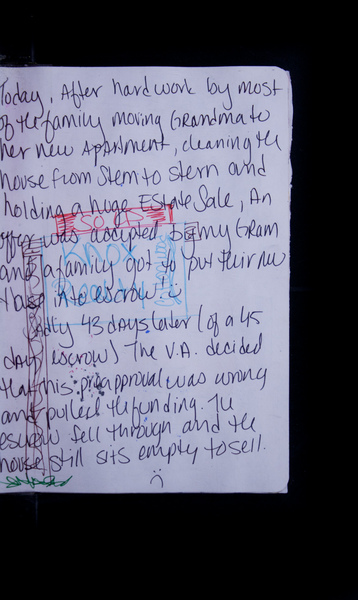 Today, After hard work by most
of the family moving Grandma to
her new Apartment, cleaning the
house from stem to stern and
holding a huge Estate Sale, An
offer was accepted by my Gram
and a family got to put their new
into escrow
Sadly 43 days later (of a 45
day escrow) The V.A. decided
that this preapproval was wrong
and pulled the funding. The
escrow fell through and the
house still sits empty to sell.
SOLD
KNOX
Realty